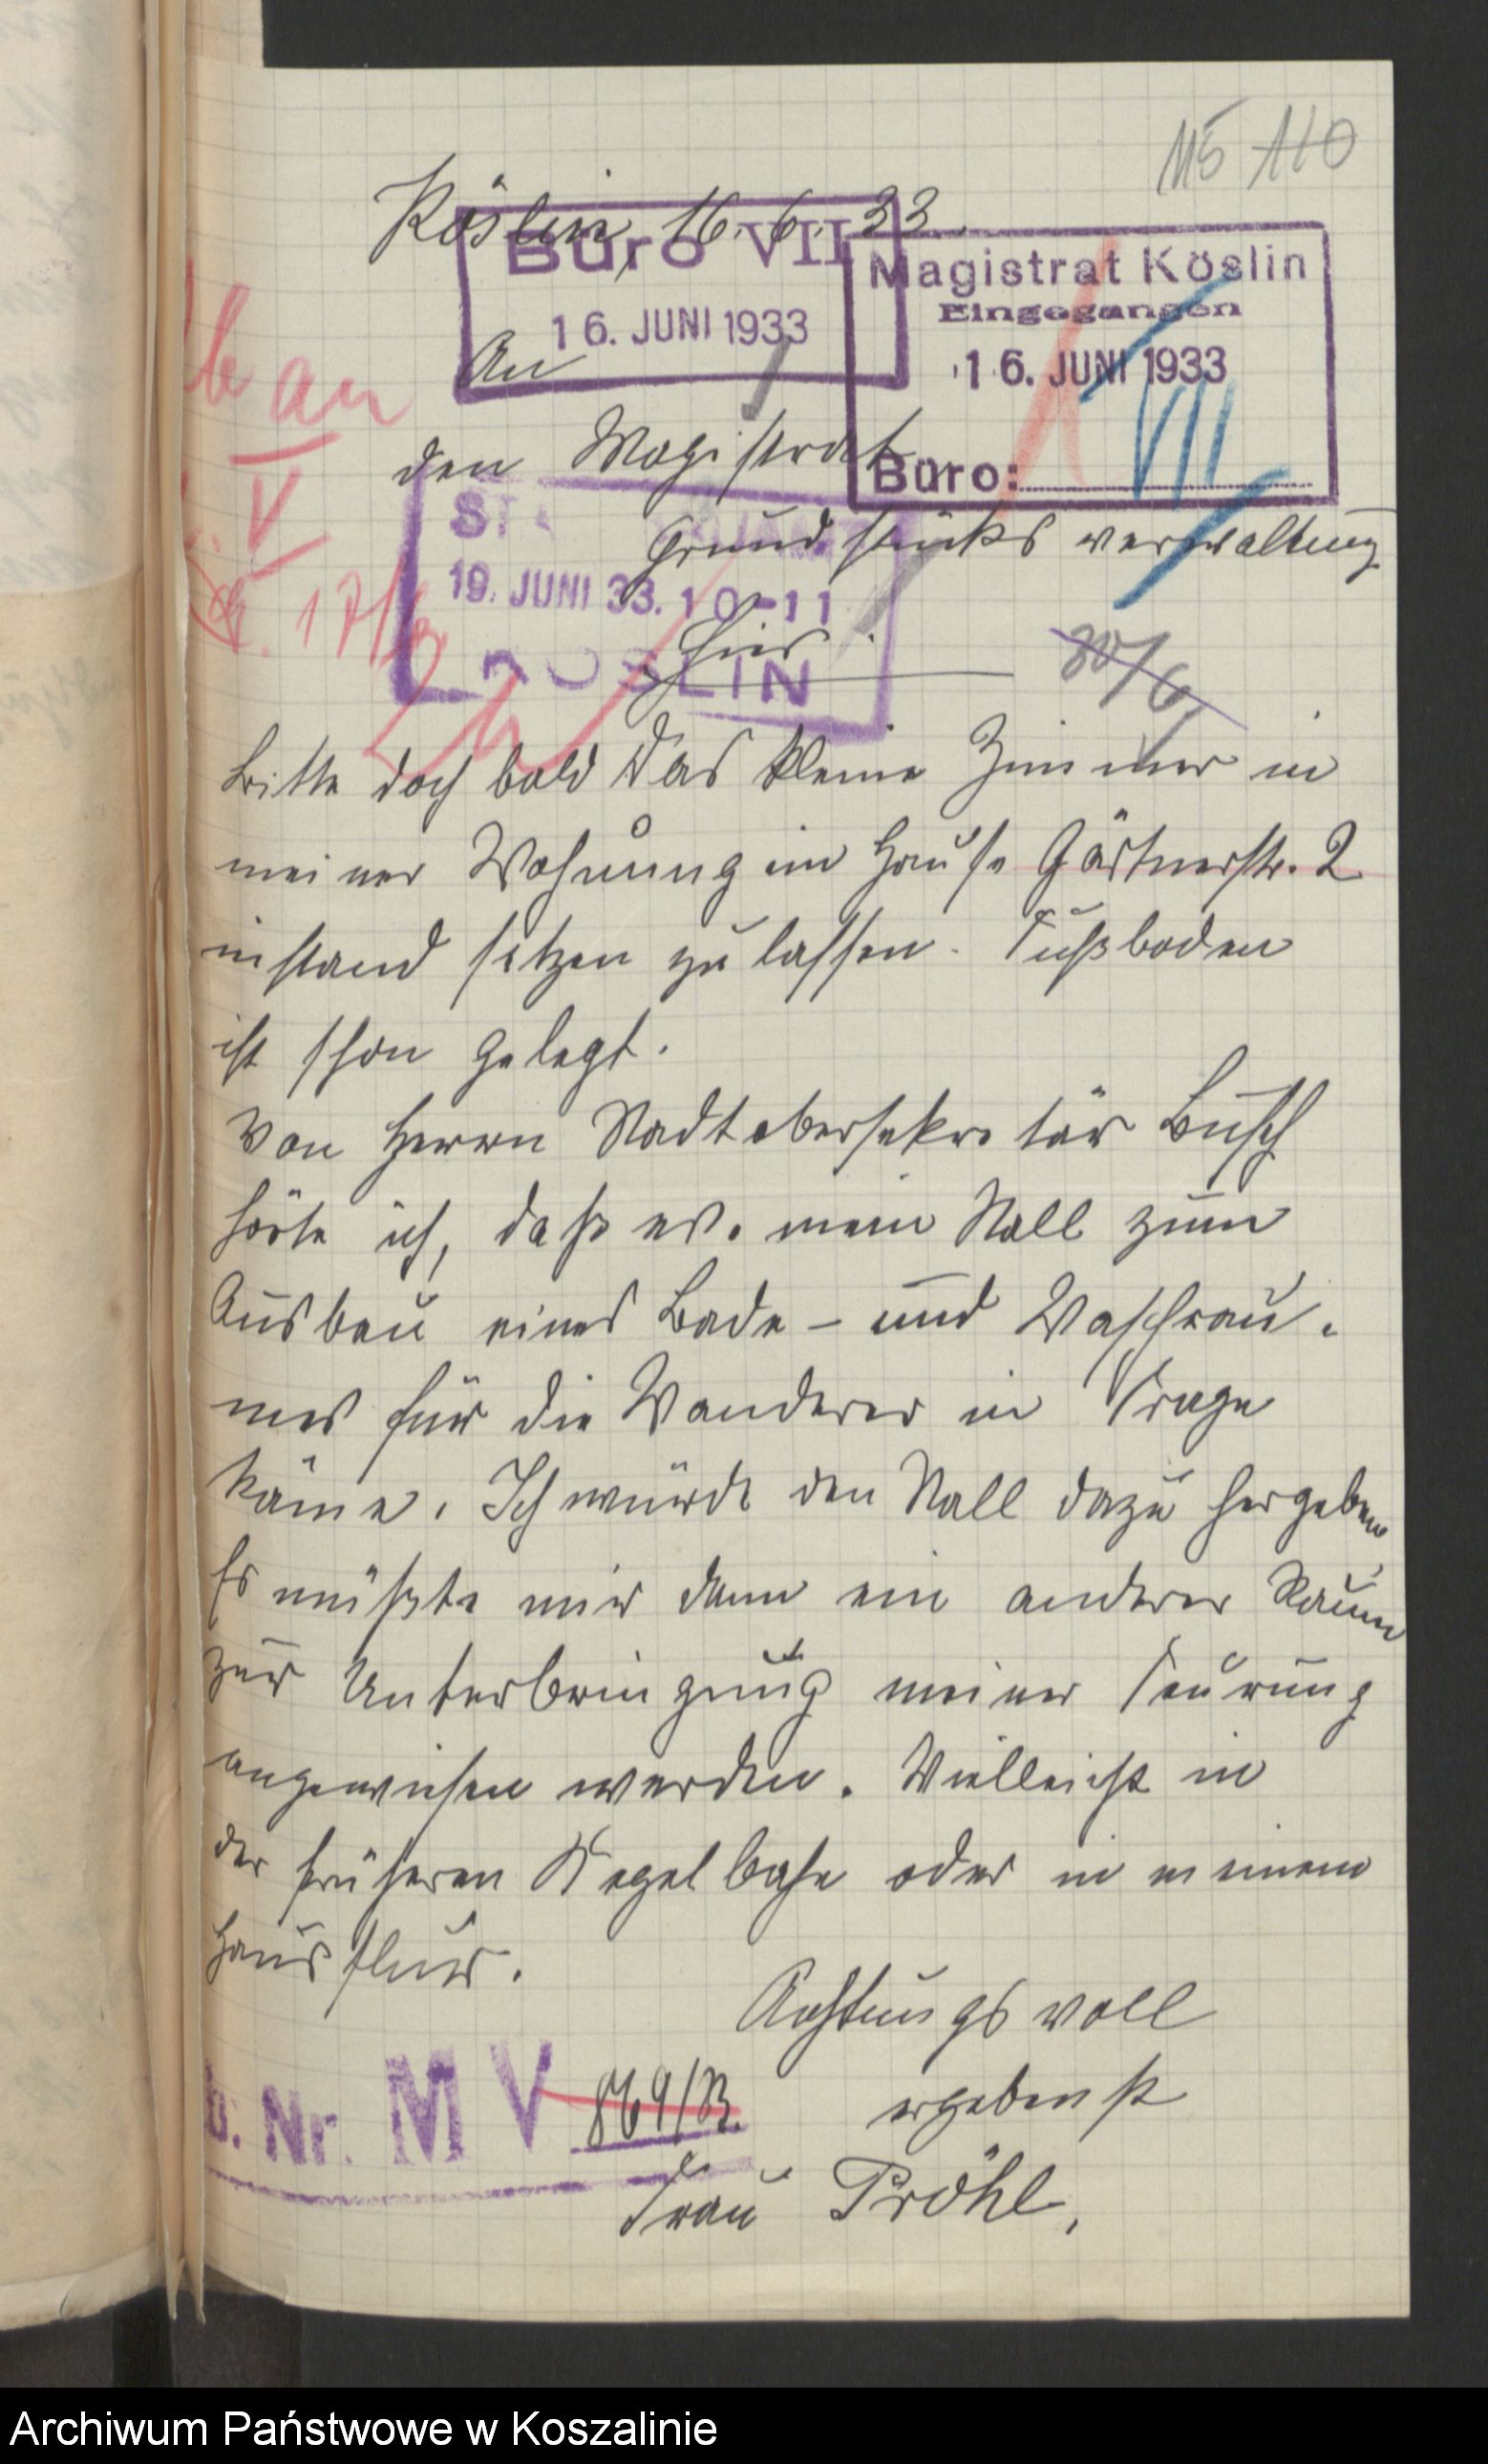 115 110
Köslin, 16. 6. 33.
Büro VII
16. JUNI 1933
Magistrat Köslin
Eingegangen
16. JUNI 1933
Büro: VII
An
den Magistrat
Grundstücksverwaltung
Hier.
19. JUNI 33. 10-11
KÖSLIN
b an
V
17/6
30/6
Bitte doch bald das kleine Zimmer in
meiner Wohnung im Hause Gärtnerstr. 2
instand setzen zu lassen. Fußboden
ist schon gelegt.
Von Herrn Stadtobersekretär Busch
hörte ich, daß ev. mein Stall zum
Ausbau eines Bade- und Waschrau-
mes für die Wanderer in Frage
käme. Ich würde den Stall dazu hergeben
Es müßte mir dann ein anderer Raum
zur Unterbringung meiner Feurung
angewiesen werden. Vielleicht in
der früheren Kegelbahn oder in meinem
Hausflur.
Achtungsvoll
ergebenst
Frau Pröhl,
b. Nr. M V 869/33.
Archiwum Państwowe w Koszalinie